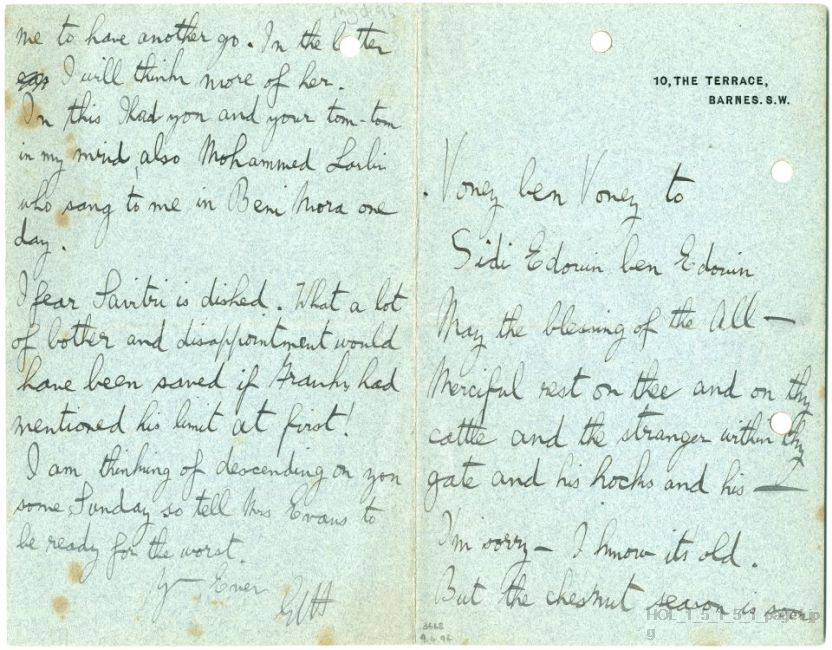 me to have another go. In the latter
I will think more of her.
In this I had you and your tom-tom
in my mind, also Mohammed Larbi
who sang to me in Beni Mora one
day.
I fear Savitri is dished. What a lot
of bother and disappointment would
have been saved if Frank had
mentioned his limit at first!
I am thinking of descending on you
some Sunday so tell Mrs Evans to
be ready for the worst.
Yrs Ever
GvH
10, THE TERRACE,
BARNES. S.W.
Voney ben Voney to
Sidi Edwin ben Edwin
May the blessing of the All —
Merciful rest on thee and on thy
cattle and the stranger within thy
gate and his hocks and his —
I'm sorry — I know its old.
But the chestnut season is so
3668
9.4.96
HOL_1_5_1_5_1_page1.jp
g